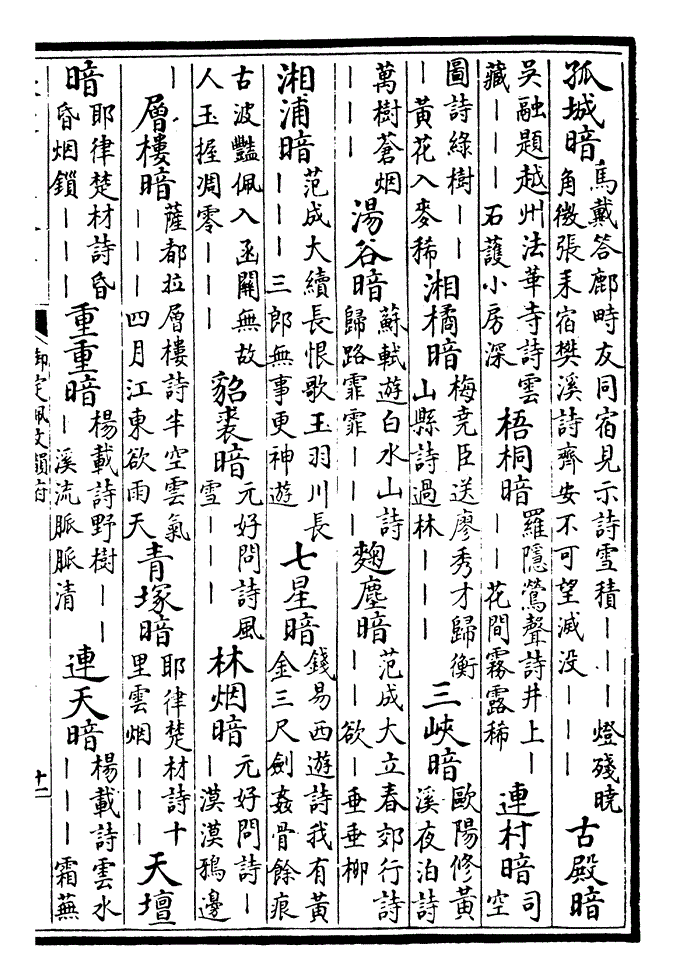 孤城暗
馬戴答鄜時友同宿見示詩雪積｜｜｜燈殘曉
角微張耒宿樊溪詩齊安不可望滅没｜｜｜
古殿暗
吳融題越州法華寺詩雲
藏｜｜｜石護小房深
梧桐暗
羅隱鶯聲詩井上｜
｜｜花間霧露稀
連村暗
司
空
圖詩綠樹｜｜
｜黄花入麥稀
湘橘暗
梅堯臣送廖秀才歸衡
山縣詩過林｜｜｜
三峽暗
歐陽修黄
溪夜泊詩
萬樹蒼烟
｜｜｜
湯谷暗
蘇軾遊白水山詩
歸路霏霏｜｜｜
麴塵暗
范成大立春郊行詩
｜｜欲｜垂垂柳
湘浦暗
范成大續長恨歌玉羽川長
｜｜｜三郎無事更神遊
七星暗
錢易西遊詩我有黄
金三尺劍姦骨餘痕
古波豔佩入函關無故
人玉握凋零｜｜｜
貂裘暗
元好問詩風
雪｜｜｜
林烟暗
元好問詩｜
｜漠漠鴉邊
｜
層樓暗
薩都拉層樓詩半空雲氣
｜｜｜四月江東欲雨天
青塚暗
耶律楚材詩十
里雲烟｜｜｜
天壇
暗
耶律楚材詩昏
昏烟鎖｜｜｜
重重暗
楊載詩野樹｜｜
｜溪流脈脈清
連天暗
楊載詩雲水
｜｜｜霜蕪
御定佩文韻府
十二